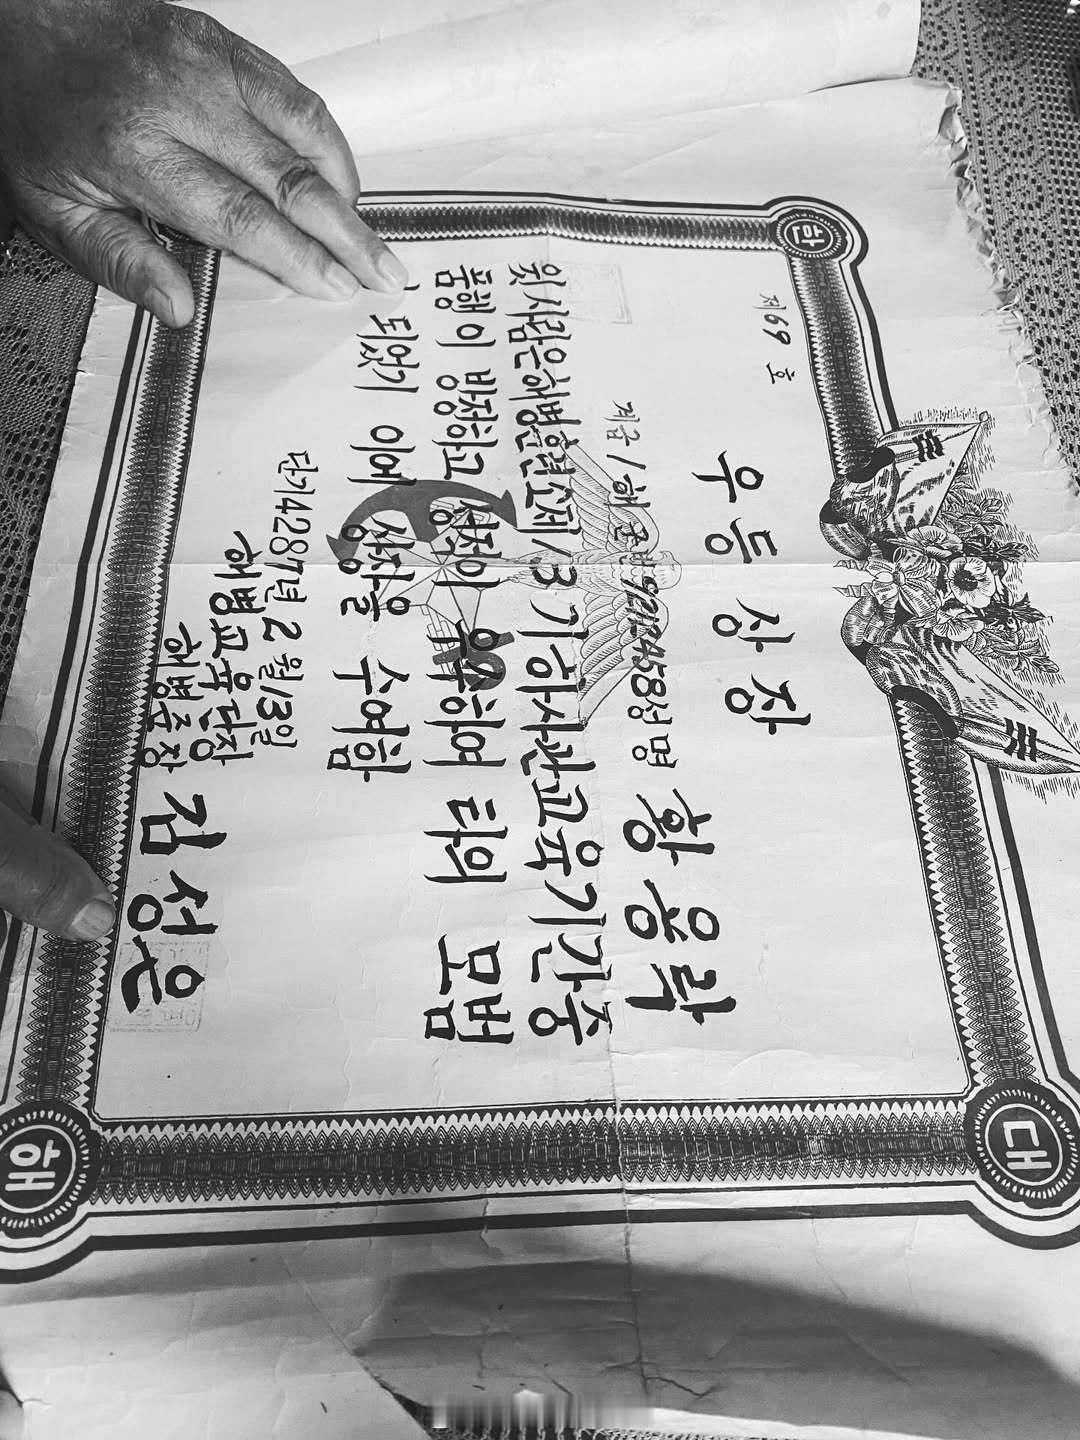 한
대
해
제69호
우등상장
계급 1해 군번9212458성명 황용락
윗사람은해병훈련소제13기하사관교육기간중
품행이 방정하고 성적이 우수하여 타의 모범
되었기 이여 상장을 수여함
단기4287년2월13일
해병교육단장
해병준장 김성은